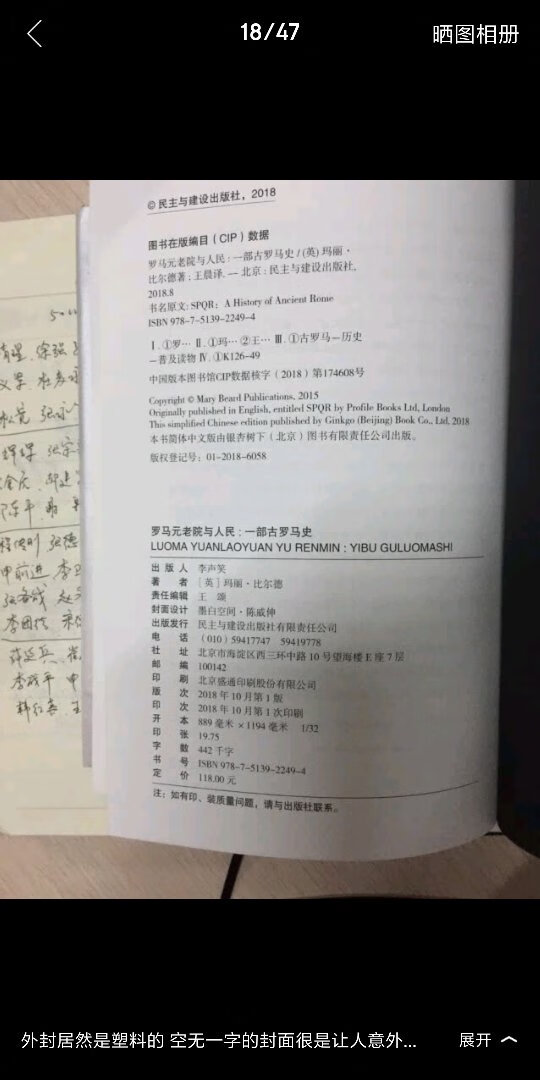 18/47
晒图相册
© 民主与建设出版社，2018
图书在版编目（CIP）数据
罗马元老院与人民：一部古罗马史 / (英) 玛丽·
比尔德著；王晨译. — 北京：民主与建设出版社，
2018.8
书名原文：SPQR：A History of Ancient Rome
ISBN 978-7-5139-2249-4
Ⅰ. ①罗… Ⅱ. ①玛… ②王… Ⅲ. ①古罗马—历史
—普及读物 Ⅳ. ①K126-49
中国版本图书馆CIP数据核字（2018）第174608号
Copyright © Mary Beard Publications, 2015
Originally published in English, entitled SPQR by Profile Books Ltd, London
This simplified Chinese edition published by Ginkgo (Beijing) Book Co., Ltd. 2018
本书简体中文版由银杏树下（北京）图书有限责任公司出版。
版权登记号：01-2018-6058
罗马元老院与人民：一部古罗马史
LUOMA YUANLAOYUAN YU RENMIN : YIBU GULUOMASHI
出版人 李声笑
著者 ［英］玛丽·比尔德
责任编辑 王颂
封面设计 墨白空间·陈威伸
出版发行 民主与建设出版社有限责任公司
电话 （010）59417747 59419778
社址 北京市海淀区西三环中路 10 号望海楼 E 座 7 层
邮编 100142
印刷 北京盛通印刷股份有限公司
版次 2018 年 10 月第 1 版
印次 2018 年 10 月第 1 次印刷
开本 889 毫米 × 1194 毫米 1/32
印张 19.75
字数 442 千字
书号 ISBN 978-7-5139-2249-4
定价 118.00 元
注：如有印、装质量问题，请与出版社联系。
外封居然是塑料的 空无一字的封面很是让人意外...
展开